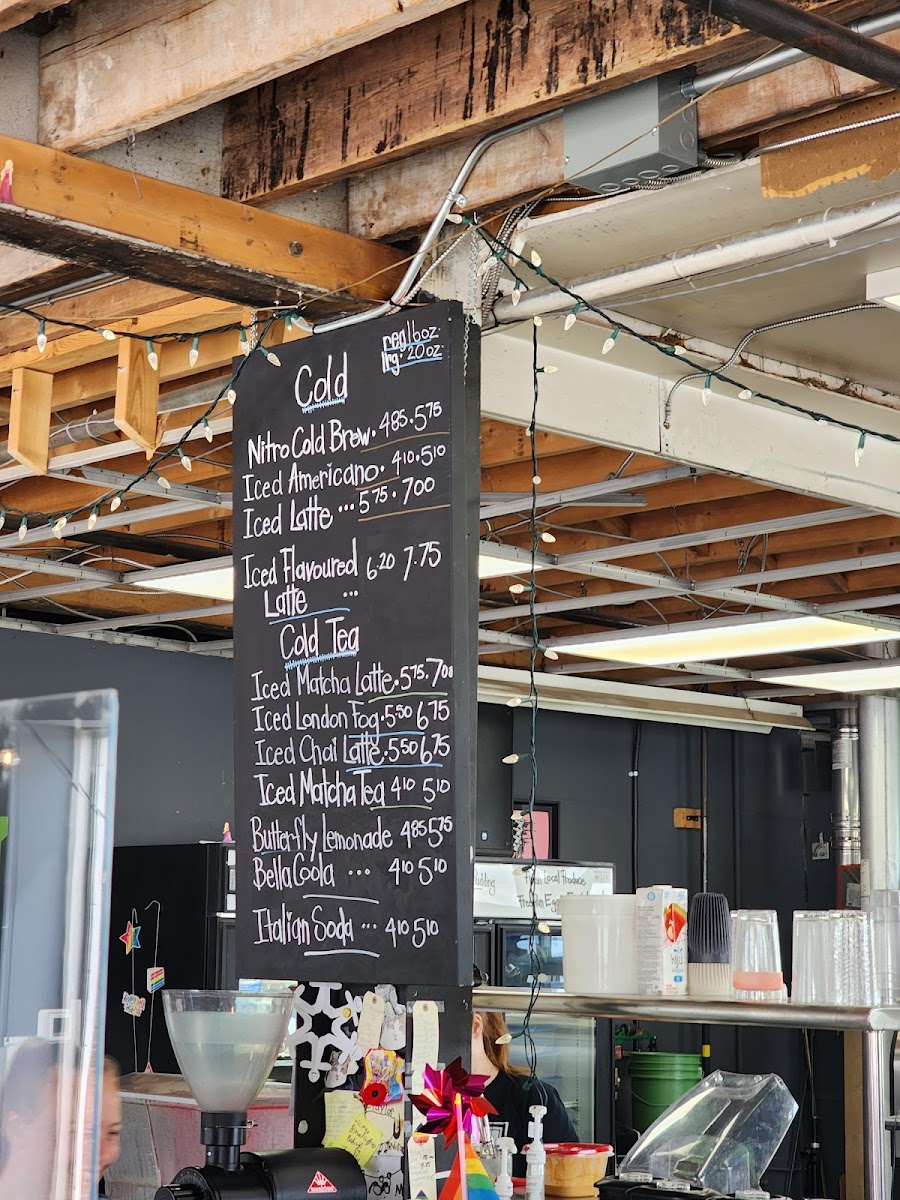 Cold
reg16oz.
lrg. 20oz
Nitro Cold Brew. 485.575
Iced Americano. 410.510
Iced Latte ... 575. 700
Iced Flavoured 6.20 7.75
Latte ...
Cold Tea
Iced Matcha Latte.575.700
Iced London Fog.550 675
Iced Chai Latte.550 675
Iced Matcha Tea 410 510
Butterfly Lemonade 485 575
Bella Coola ... 410 510
Italian Soda ... 410 510
Local Produce